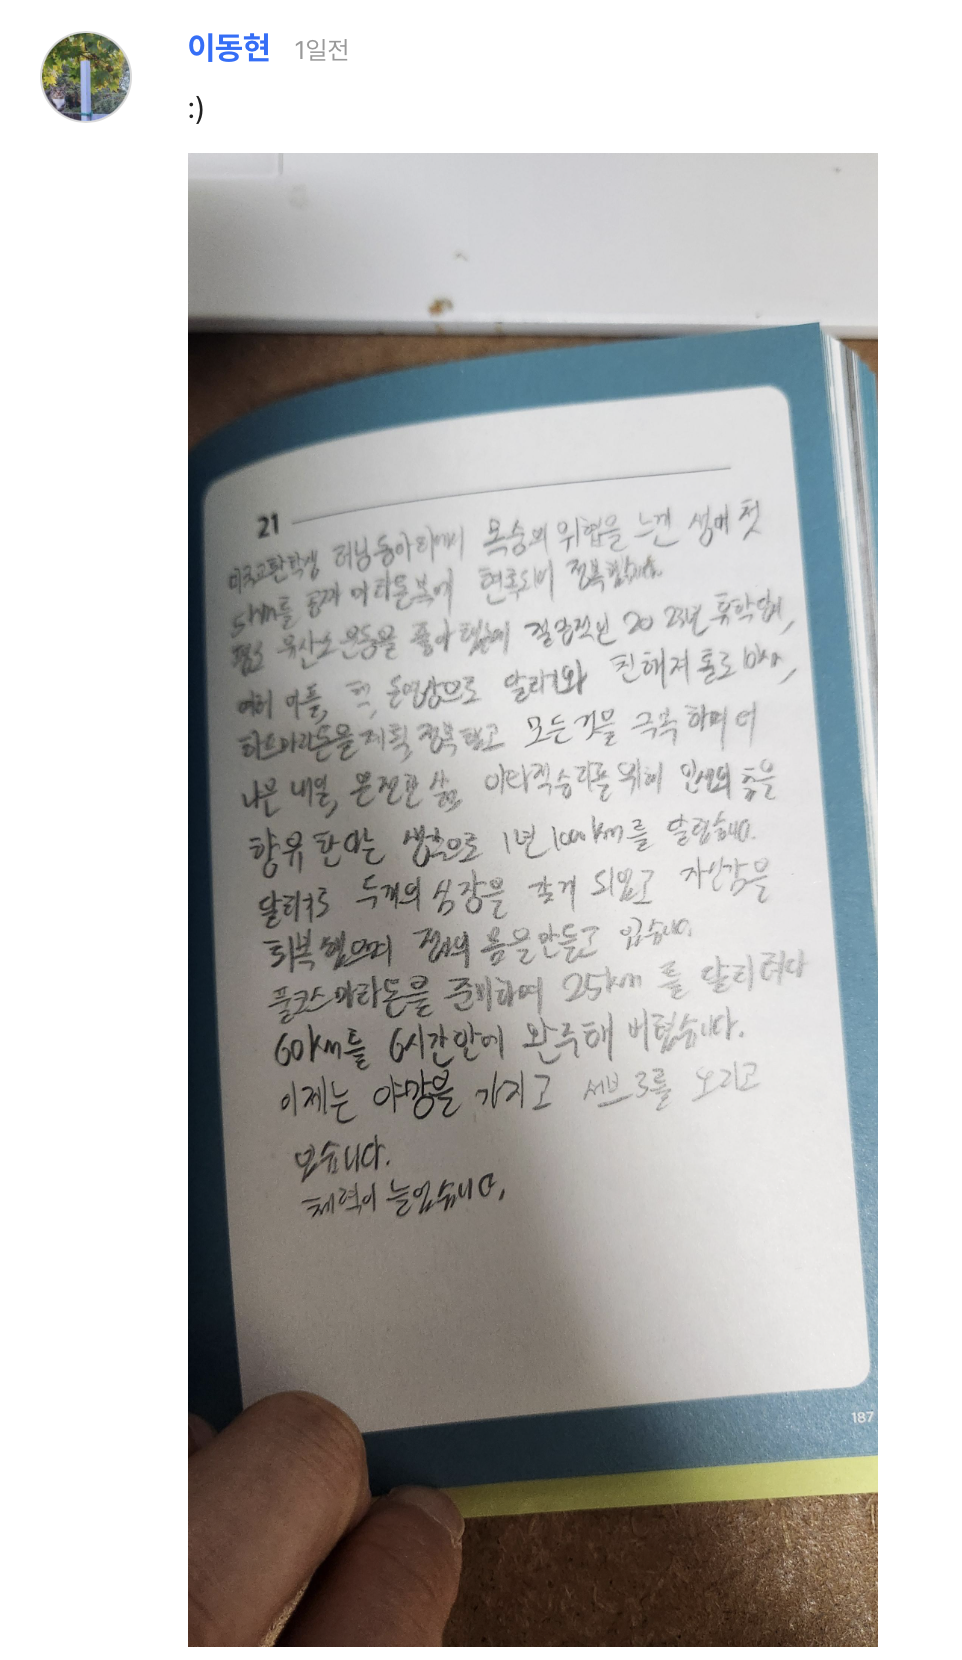 이동현 1일전
:)
21
미국교환학생 러닝동아리에서 목숨의 위협을 느낀 생애 첫
5km를 공짜 마라톤복에 현혹되어 정복했습니다.
평소 유산소 운동을 좋아했기에 절망적인 2023년 휴학당시,
여러 어플, 책, 동영상으로 달리기와 친해져 홀로
하프마라톤을 계획, 정복하고 모든 것을 극복하며 더
나은 내일, 온전한 삶, 이타적승리를 위해 인생의 춤을
향유한다는 생각으로 1년 1000km를 달렸습니다.
달리기로 두개의 심장을 갖게 되었고 자신감을
회복했으며 몸을 만들고 있습니다.
풀코스마라톤을 준비하며 25km를 달리려다
60km를 6시간안에 완주해 버렸습니다.
이제는 야망을 가지고 서브3를 노리고
있습니다.
체력이 늘었습니다.
187